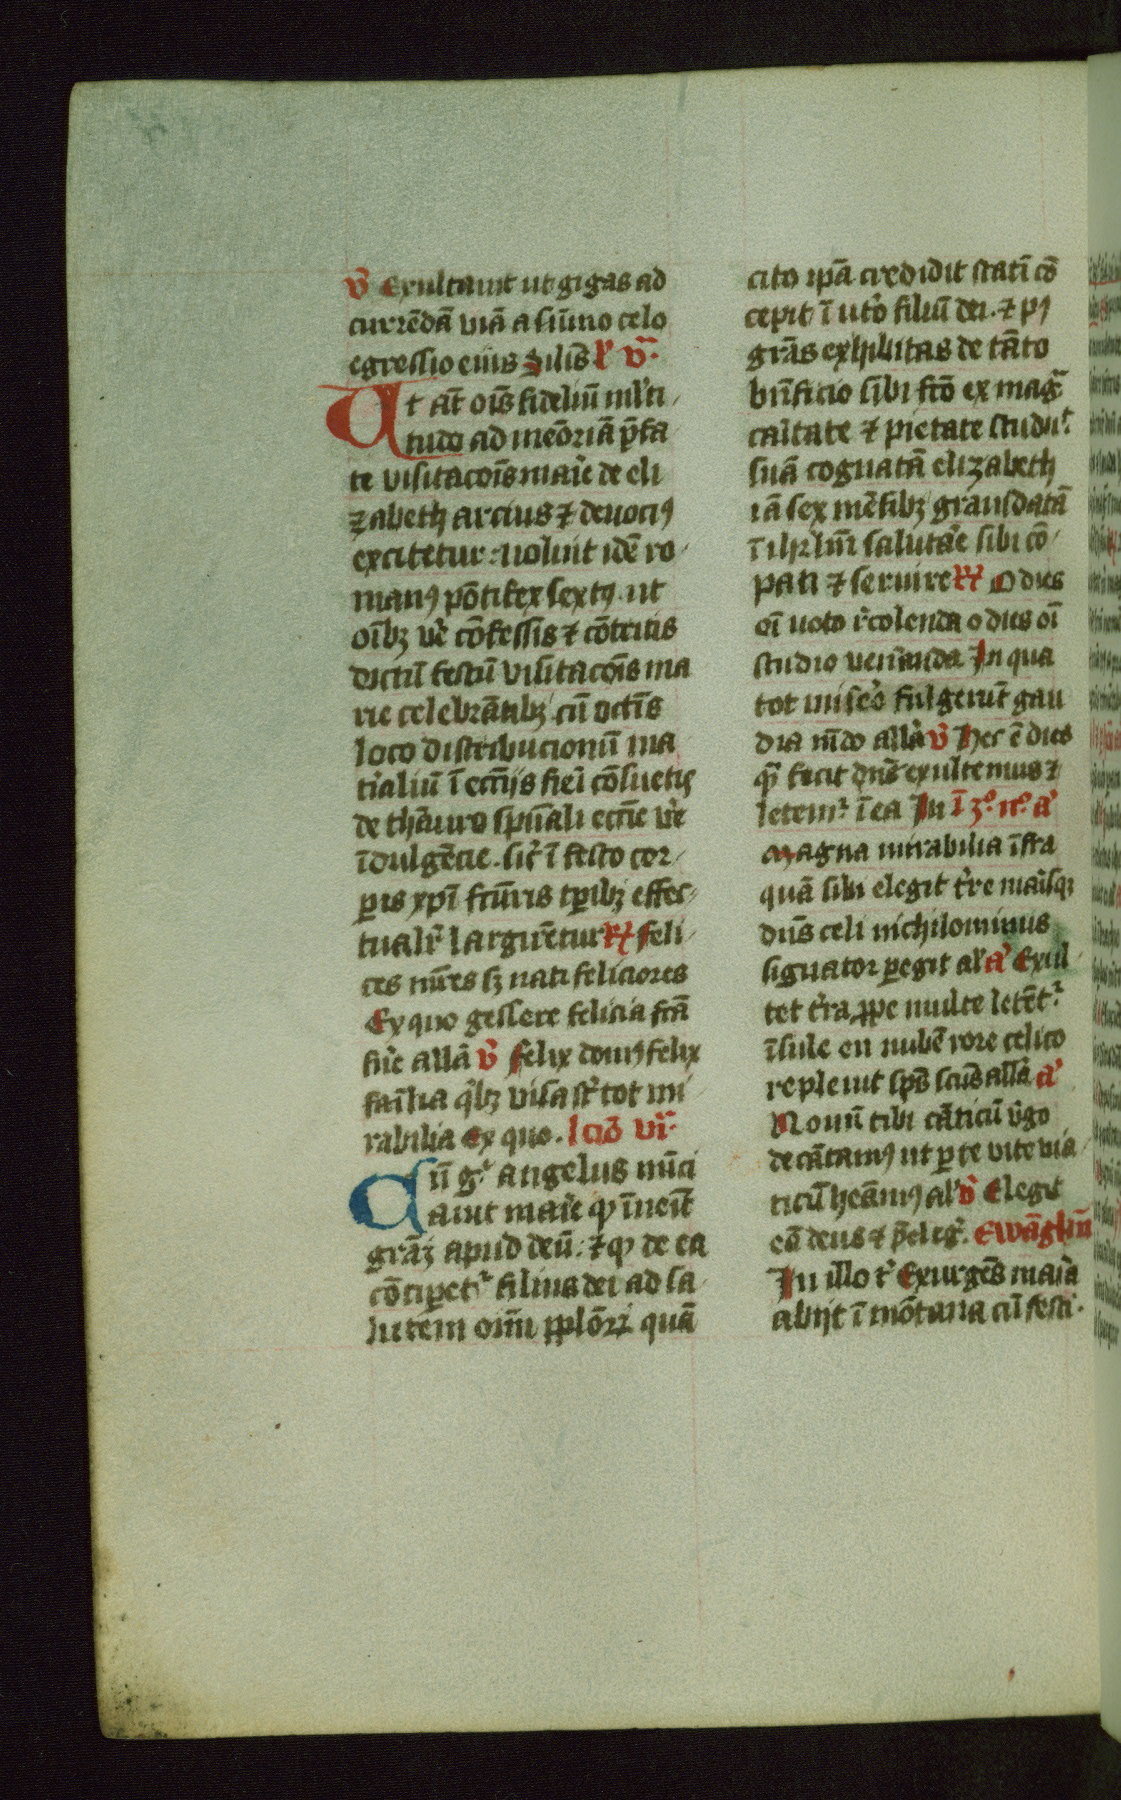 v̄ Exultauit ut gigas ad
currēdā viā a sūmo celo
egressio eius Similis l' v̄ͣ.
Ut āt oīs fideliū mlti
tudo ad meōriā p̄fa
te visitacōis marie de eli
zabeth arcius ⁊ deuociꝰ
excitetur. uoluit idē ro
manꝰ pōtifex sextꝰ. ut
oībꝫ ve cōfessis ⁊ cōtritis
dictū festū visitacōis ma
rie celebrātibꝫ cū octīs
loco distribucionū ma
t'ialiū ī ecc̄ijs fieī cōsuetis
de thāuro sp̄uali ecc̄ie ve
īdulgēcie. sic' ī festo cor
ꝑis xp̄i fcūris tꝑibꝫ effec
tualr̄ largirētur R̄ feli
ces mr̄es sꝫ nati feliciores
Ex quo gessere felicia fc̄a
fuē allā v̄ felix domꝰ felix
famlia q'bꝫ visa st̄ tot mi
rabilia Ex quo. lciō vi.
Cū gͦ angelus nūci
auit marie ꝙ īueīt
grāꝫ apud deū. ⁊ ꝙ de ea
cōciꝑet' filius dei ad sa
lutem oīm pp̄lōrꝫ quā
cito ipā credidit statī cō
cepit ī uto filiū dei. ⁊ pꝰ
grās exhibitas de tāto
bn̄ficio sibi fcō ex mag
caltate ⁊ pietate studuit
suā cognatā elizabeth
iā sex mēsibꝫ grauidatā
ī ihrlm̄ salutāe sibi cō
pati ⁊ seruire R̄ O dies
oī uoto r̄colenda o dies oī
studio ven̄anda In qua
tot miseō fulgerūt gau
dia mūdo allā v̄ Hec ē dies
qͣ fecit dn̄s exultemus ⁊
letem' ī ea In ī 3º. nº. aº
Magna mirabilia īfra
quā sibi elegit t're maīsqꝫ
dn̄s celi nichilominus
signator ꝑegit al' a' Exul
tet t'ra ꝓpe multe letēt'
īsule en nubē rore celico
repleuit sp̄s scūs allā a'
Nouū tibi cāticū v̄go
decātamꝰ ut ꝑ te vite via
ticū heāmꝰ al' v̄ Elegit
eā deus ⁊ p̄eleg'. Ewāgliū
In illo t' Exurgēs maīa
abijt ī mōtana cū festi